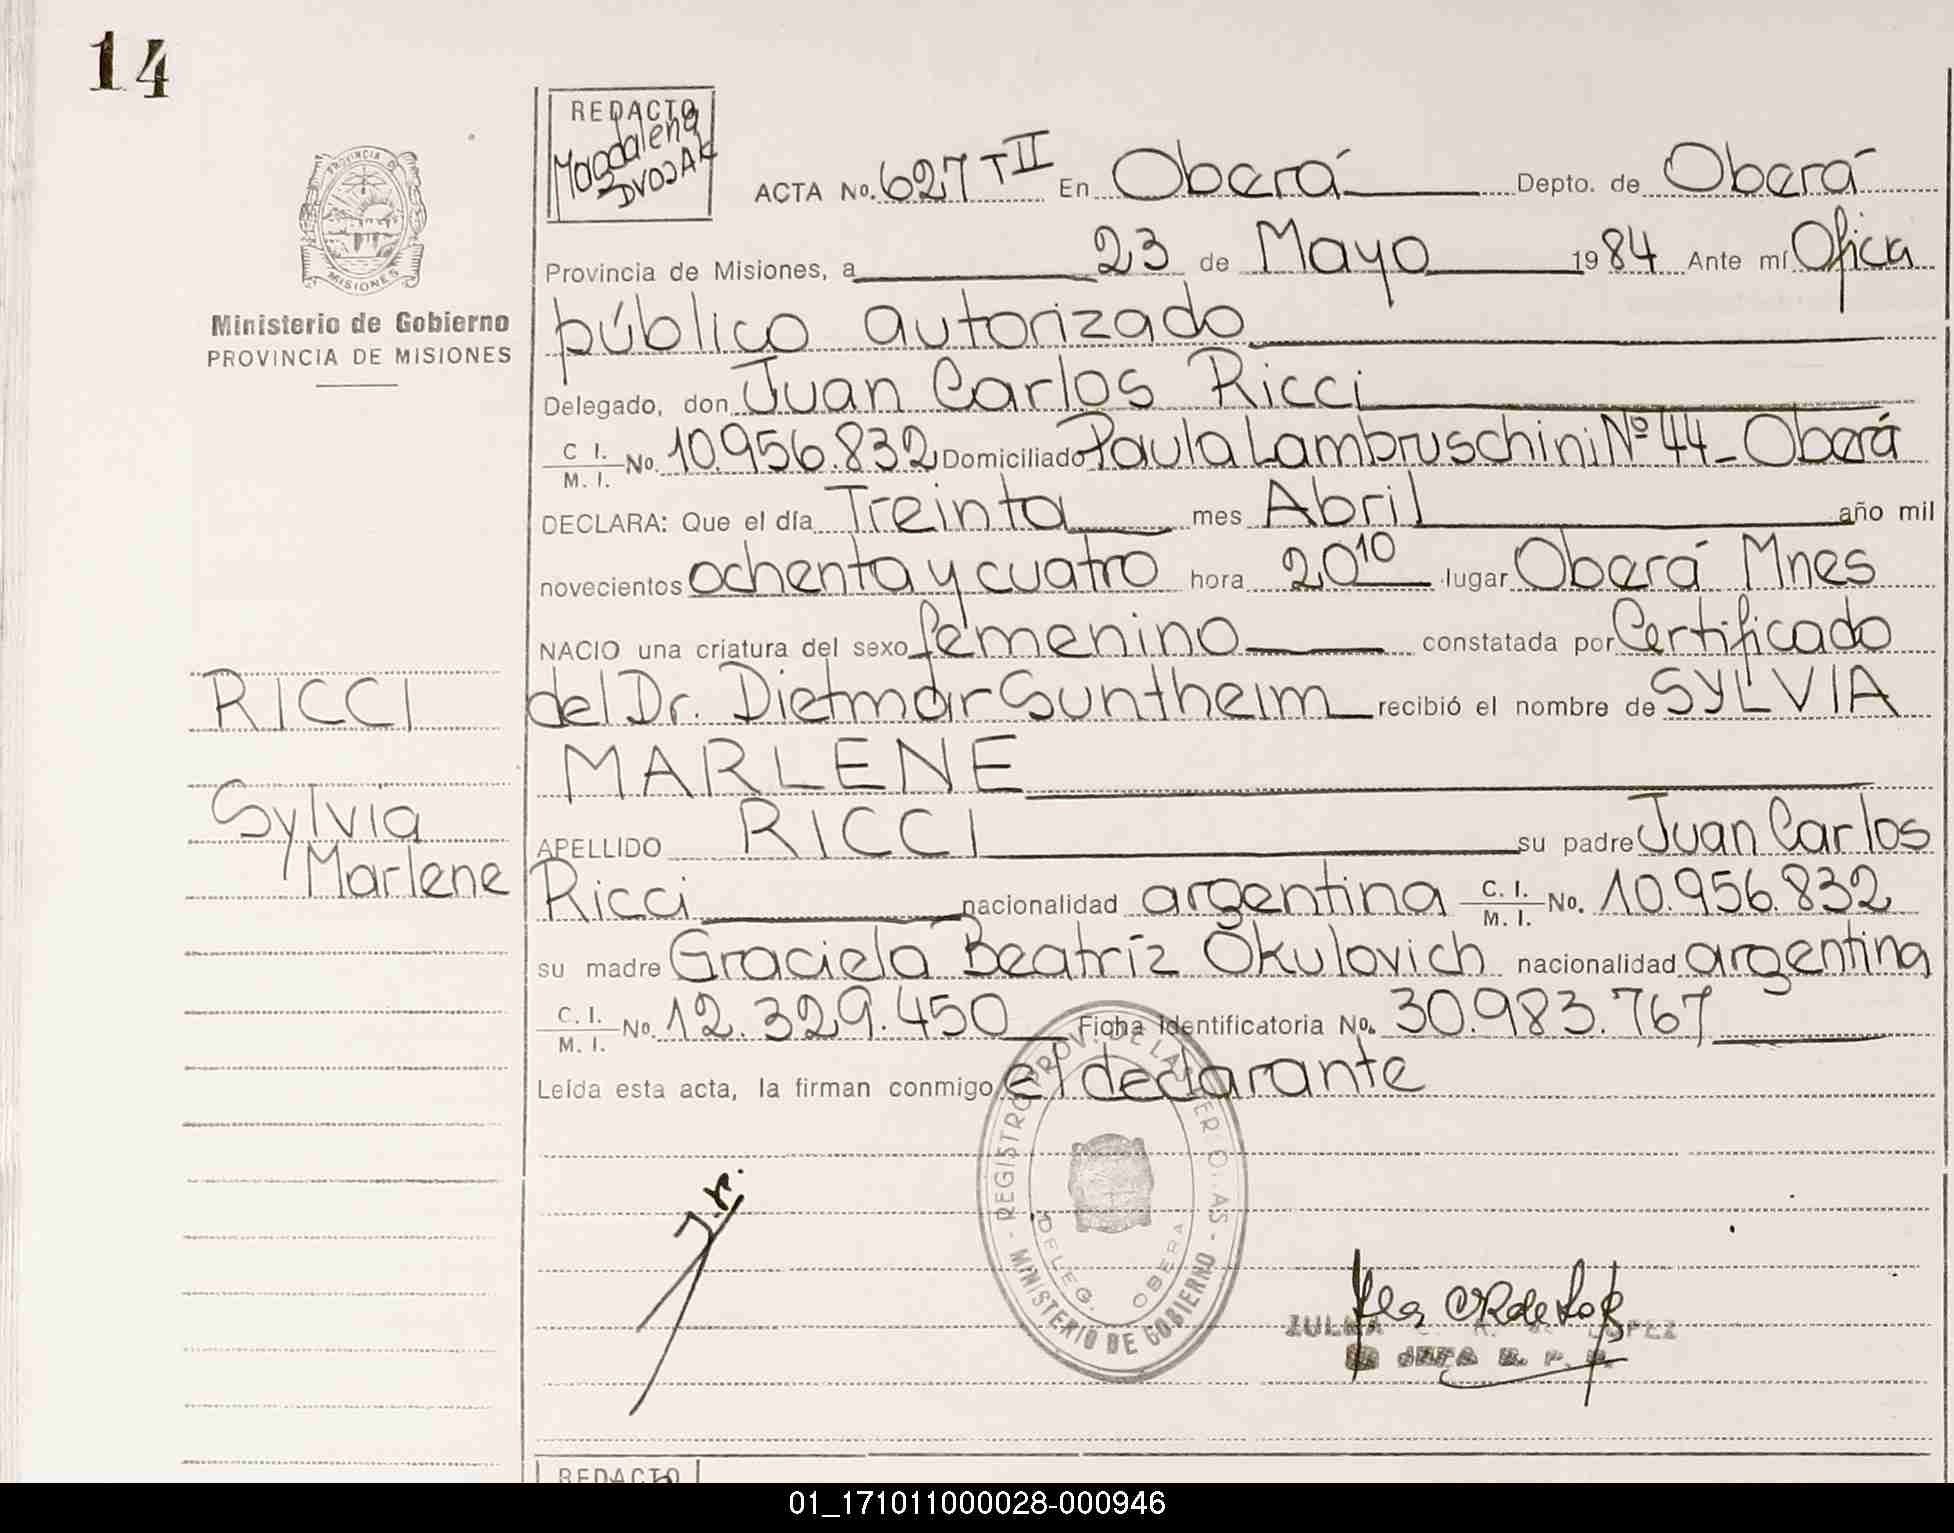 14
REDACTO
Magdalena
DVOJAK
PROVINCIA DE
MISIONES
Ministerio de Gobierno
PROVINCIA DE MISIONES
ACTA No. 627 T II En Oberá Depto. de Oberá
Provincia de Misiones, a 23 de Mayo 1984 Ante mí Oficia
público autorizado
Delegado, don Juan Carlos Ricci
C I. / M. I. No. 10.956.832 Domiciliado Paula Lambruschini Nº 44 - Oberá
DECLARA: Que el día Treinta mes Abril año mil
novecientos ochenta y cuatro hora 20 10 lugar Oberá Mnes
NACIO una criatura del sexo femenino constatada por Certificado
RICCI
del Dr. Dietmar Suntheim recibió el nombre de SYLVIA
MARLENE
Sylvia
Marlene
APELLIDO RICCI su padre Juan Carlos
Ricci nacionalidad argentina C. I. / M. I. No. 10.956.832
su madre Graciela Beatríz Okulovich nacionalidad argentina
C. I. / M. I. No. 12.329.450 Ficha identificatoria No. 30.983.767
Leída esta acta, la firman conmigo el declarante
REGISTRO PROV. DE LAS PERSONAS - MINISTERIO DE GOBIERNO -
DELEG. OBERA
J.r.
LOPEZ
JEFA
REDACTO
01_171011000028-000946